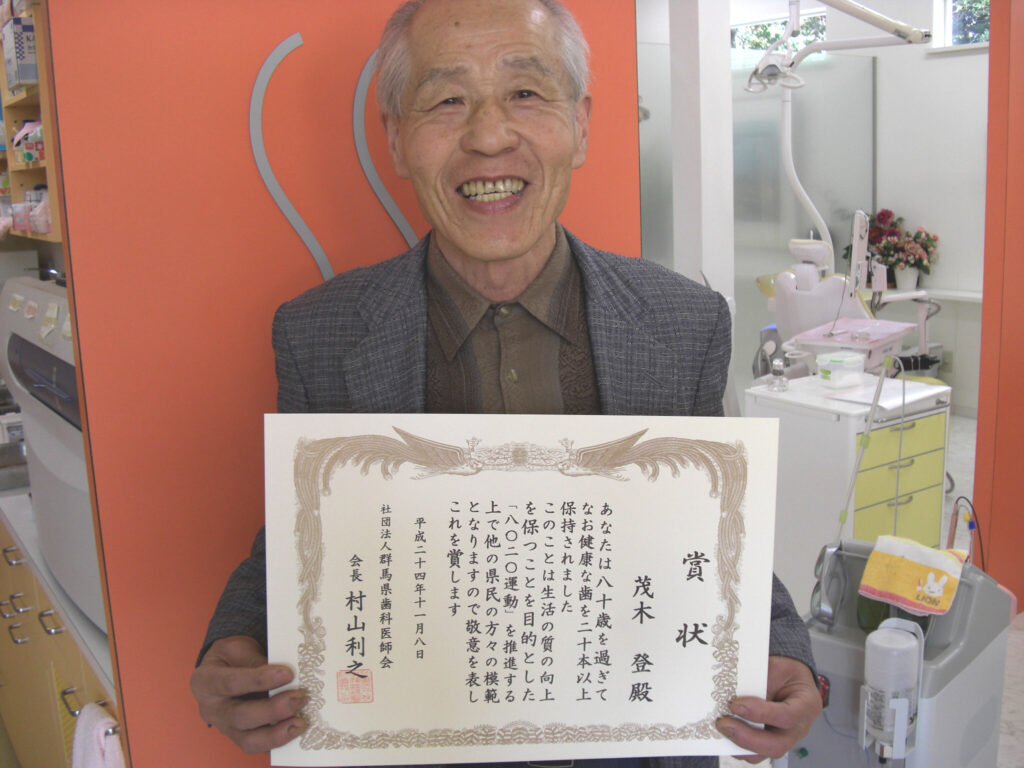 賞状
茂木 登 殿
あなたは八十歳を過ぎて
なお健康な歯を二十本以上
保持されました
このことは生活の質の向上
を保つことを目的とした
「八〇二〇運動」を推進する
上で他の県民の方々の模範
となりますので敬意を表し
これを賞します
平成二十四年十一月八日
社団法人群馬県歯科医師会
会長 村山利之
LION